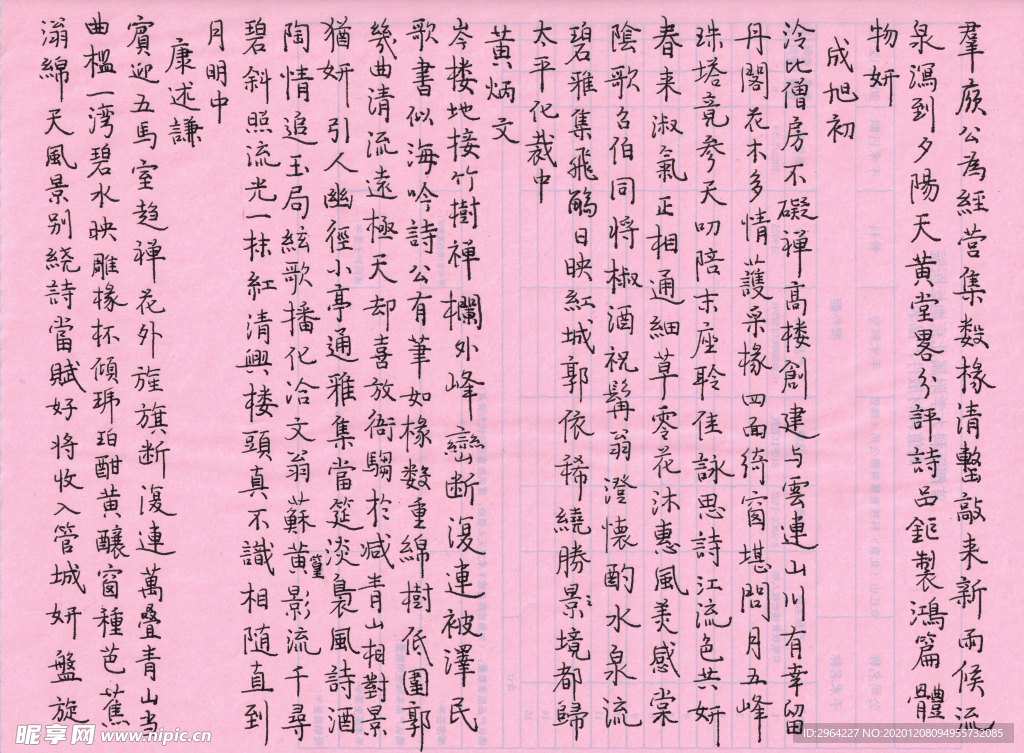 羣廎公為經营集数椽清磬敲来新雨候流
泉瀉到夕陽天黄堂畧分評詩品鉅製鴻篇體
物妍
成旭初
冷比僧房不礙禅高楼創建与雲連山川有幸留
丹閣花木多情護采椽四面绮窗堪問月五峰
珠塔竟参天叨陪末座聆佳詠思詩江流色共妍
春来淑氣正相通細草零花沐惠風羙感棠
陰歌召伯同将椒酒祝髯翁澄懷酌水泉流
碧雅集飛觴日映紅城郭依稀繞勝景境都歸
太平化裁中
黄炳文
岑楼地接竹樹禅欄外峰巒断復連被澤民
歌書似海吟詩公有筆如椽数重綿樹低圍郭
幾曲清流遠極天却喜放衙騶於减青山相對景
猶妍引人幽徑小亭通雅集當筵淡裊風詩酒
陶情追玉局絃歌播化洽文翁蘇黄篁影流千尋
碧斜照流光一抹紅清興楼頭真不識相随直到
月明中
康述謙
賓迎五馬室趋禅花外旌旗断復連萬叠青山当
曲槛一湾碧水映雕椽杯傾琲珀酣黄釀窗種芭蕉
滃綿天風景别繞詩當賦好将收入管城妍盤旋
昵享网 www.nipic.cn
ID:2964227 NO:20201208094955732085